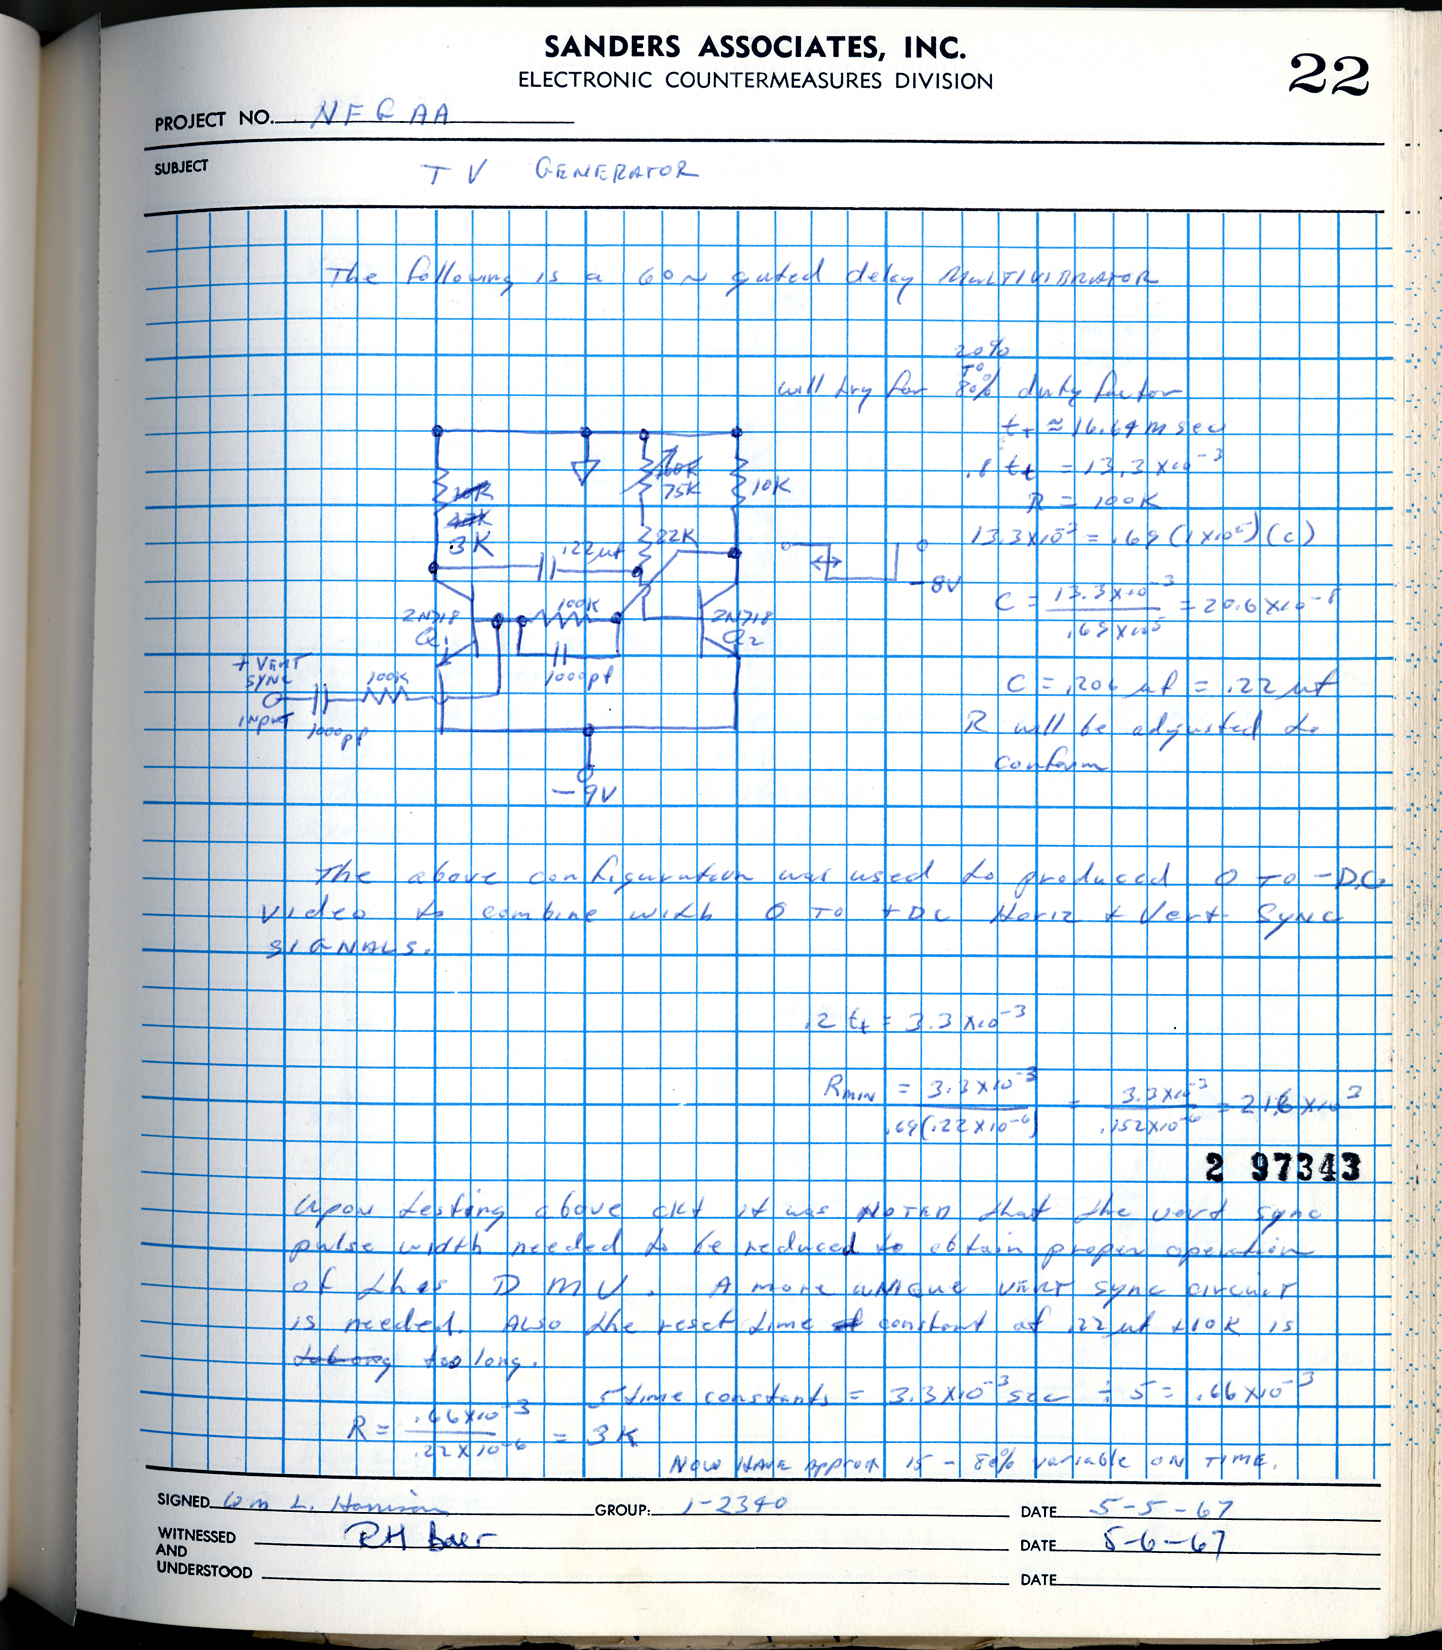 SANDERS ASSOCIATES, INC.
ELECTRONIC COUNTERMEASURES DIVISION
22
PROJECT NO. NEQAA
SUBJECT
TV GENERATOR
The following is a 60~ gated delay MULTIVIBRATOR
20%
TO
will try for 80% duty factor
tT ≈ 16.67 m sec
.8 tt = 13.3 x10-3
R = 100K
13.3x10-3 = .69 (1x10+5) (c)
C = 13.3x10-3 / .69 x10+5 = 20.6 x10-8
C = .206 uf = .22 uf
R will be adjusted to
conform
10K
3K
100K
75K
10K
22K
.22uf
100K
1000pf
2N718
Q1
2N718
Q2
-8V
+ VERT
SYNC
INPUT
1000pf
100K
-9V
The above configuration was used to produced 0 TO -DC
video to combine with 0 TO +DC Horiz + Vert Sync
SIGNALS.
.2 tt = 3.3 x10-3
RMIN = 3.3x10-3 / .69(.22 x10-6) = 3.3x10-3 / .152x10-6 = 21.6 x10 3
2 97343
Upon testing above ckt it was NOTED that the vert sync
pulse width needed to be reduced to obtain proper operation
of this D M V. A more UNIQUE VERT sync circuit
is needed. Also the reset time constant of .22 uf + 10K is
too long.
5 time constants = 3.3x10-3 sec ÷ 5 = .66 x10-3
R = .66x10-3 / .22 x10-6 = 3K
NOW HAVE Approx 15 - 80% variable ON TIME.
SIGNED Wm L. Harrison GROUP: 1-2340 DATE 5-5-67
WITNESSED AND UNDERSTOOD RH Baer DATE 5-6-67
DATE